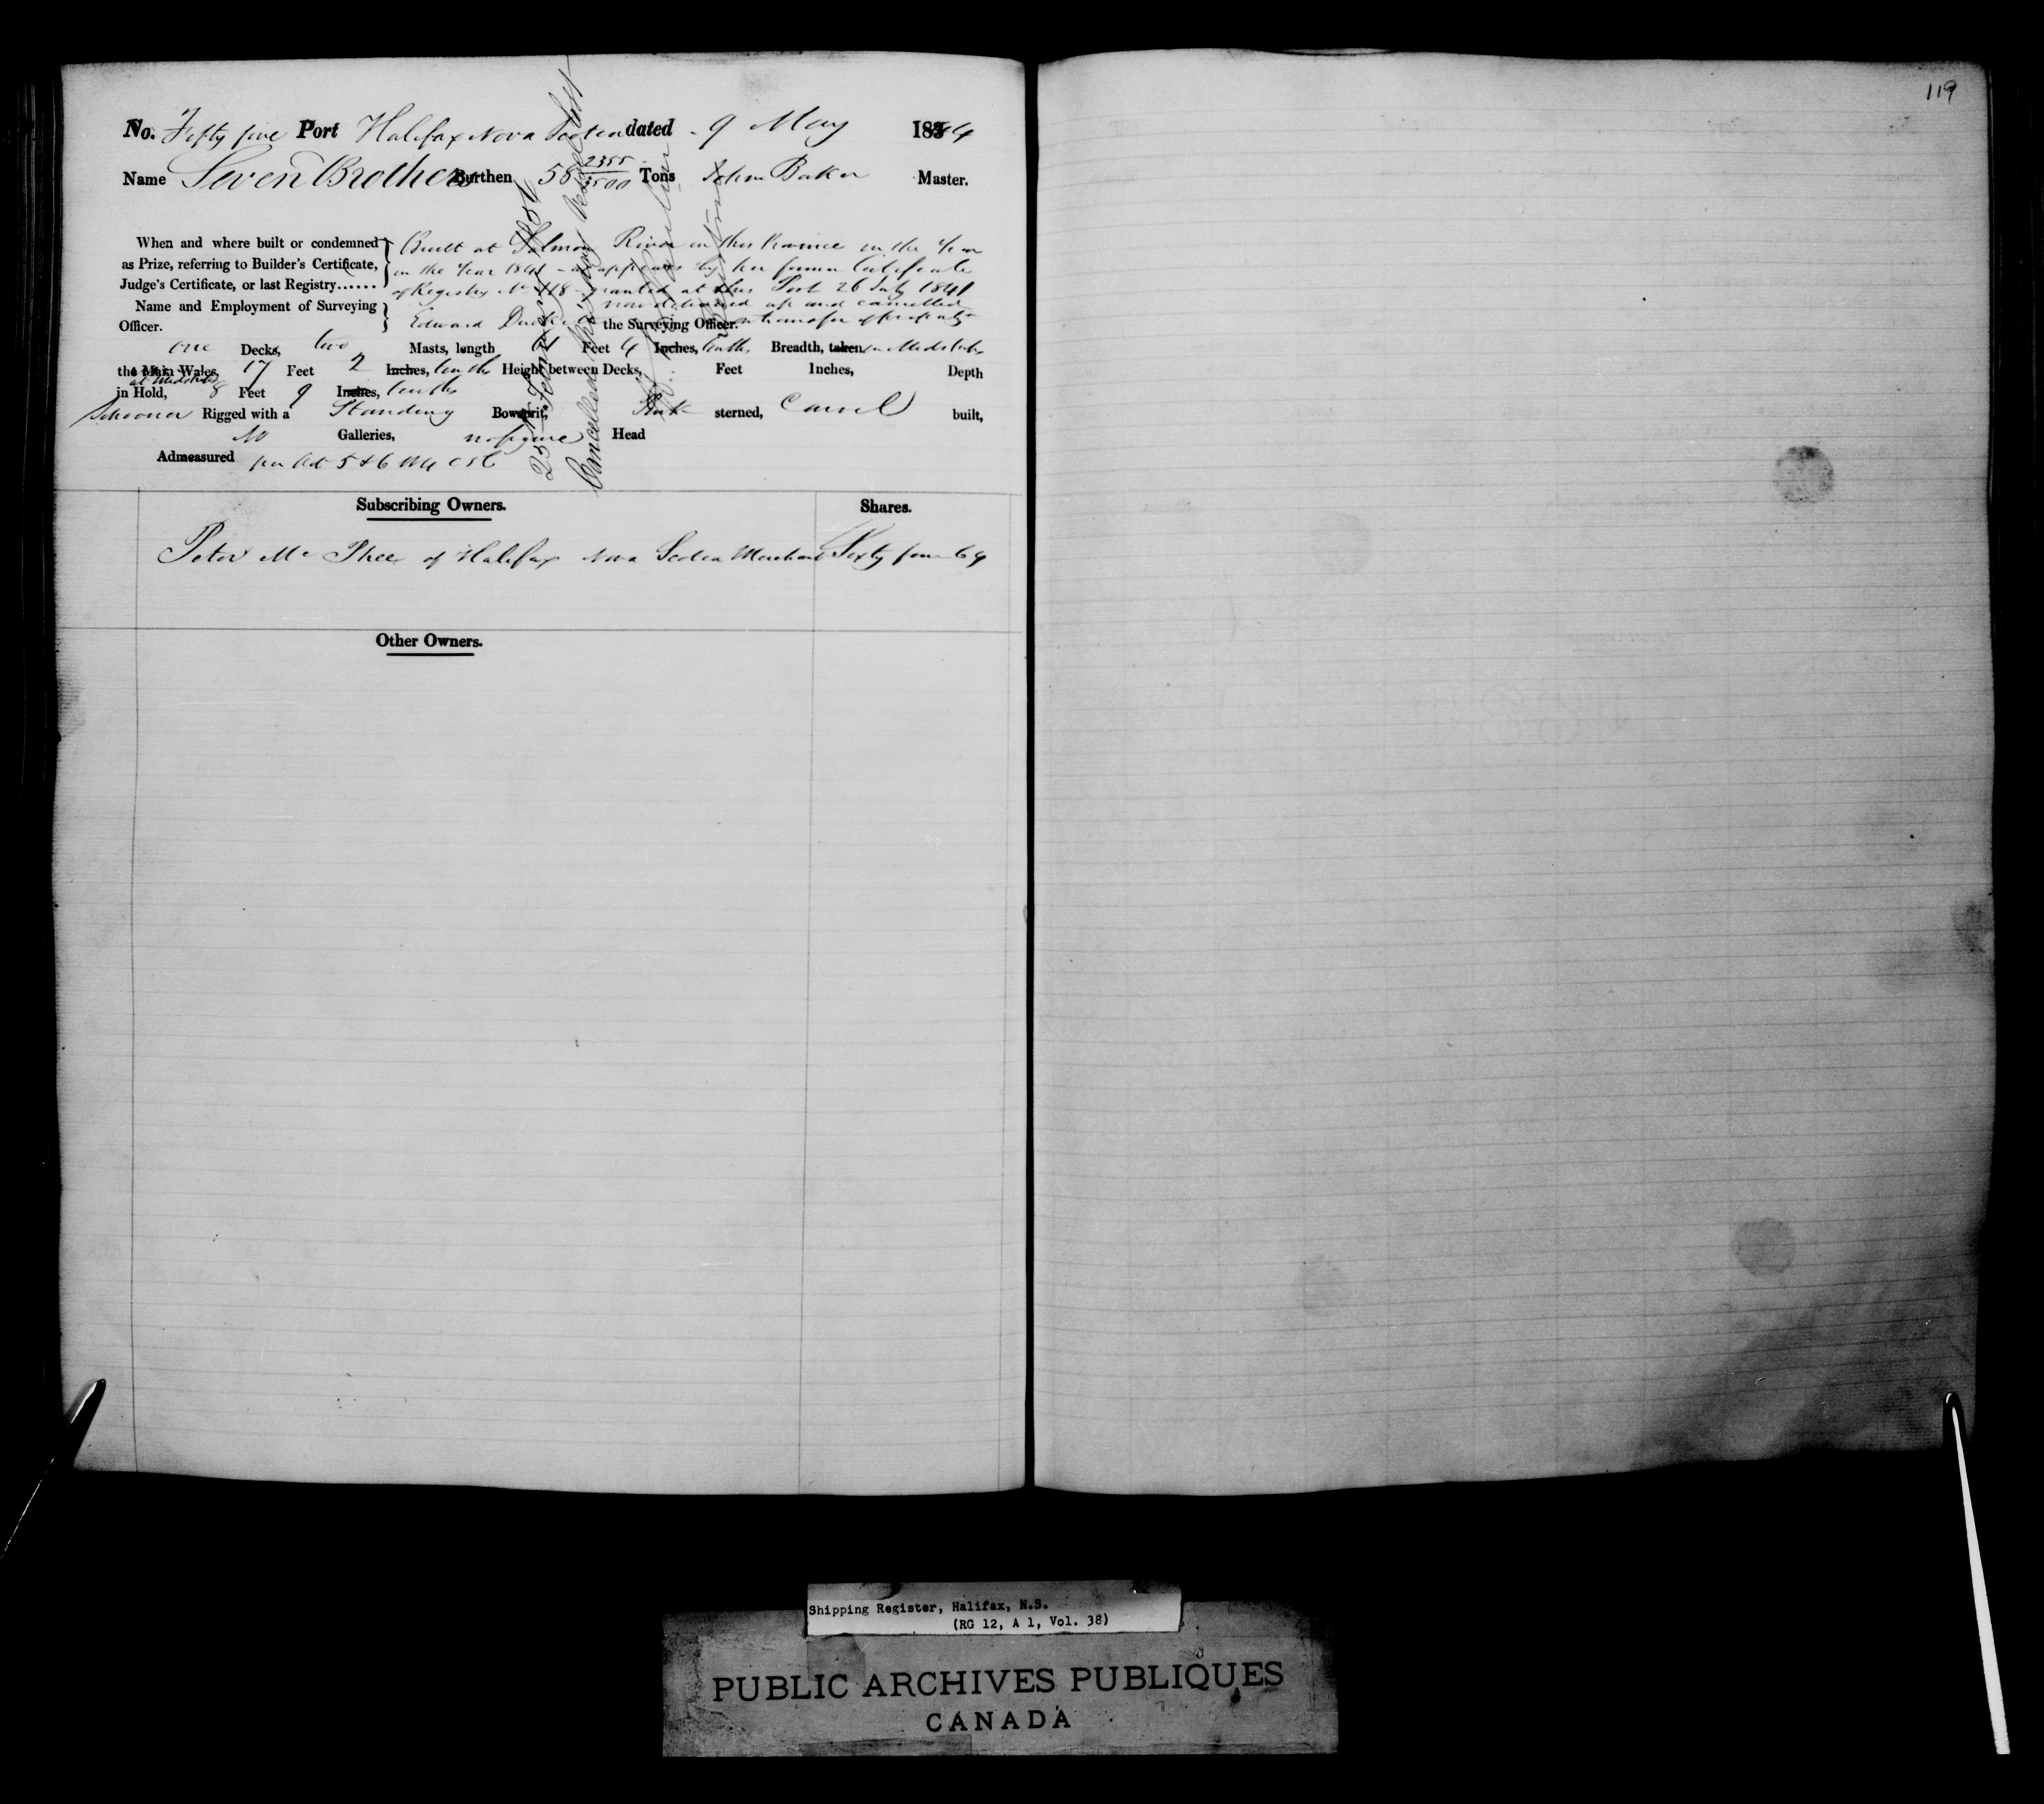 119
No. Fifty five Port Halifax Nova Scotia dated 9 May 1844
Name Seven Brothers Burthen 58 2355/3500 Tons John Baker Master.
When and where built or condemned as Prize, referring to Builder's Certificate, Judge's Certificate, or last Registry......
Built at Salmon River in this Province in the Year
in the Year 1841 - as appears by her former Certificate
of Registry No 118 granted at this Port 26 July 1841
now delivered up and cancelled
Name and Employment of Surveying Officer.
Edward the Surveying Officer. on transfer of property
one Decks, two Masts, length Feet 4 Inches, tenths Breadth, taken in Midships
the Main Wales, 17 Feet 2 Inches, tenths Height between Decks, Feet Inches, Depth
at Midships
in Hold, 8 Feet 9 Inches, tenths
Schooner Rigged with a Standing Bowsprit, sterned, Carvel built,
No Galleries, no figure Head
Admeasured per Act 5 & 6
25 February
Cancelled Vessel lost
Subscribing Owners. Shares.
Peter Mc Phee of Halifax Nova Scotia Merchant Sixty four 64
Other Owners.
Shipping Register, Halifax, N.S.
(RG 12, A 1, Vol. 38)
PUBLIC ARCHIVES PUBLIQUES
CANADA